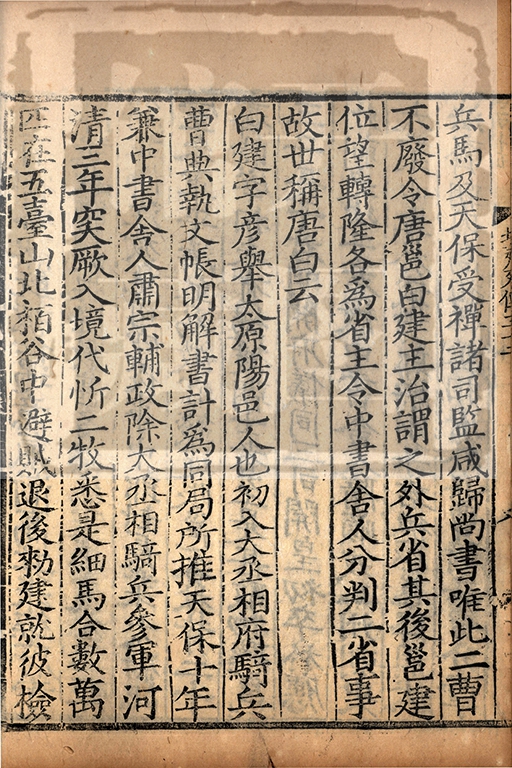 兵馬及天保受禪諸司監咸歸尚書唯此二曹
不廢令唐邕白建主治謂之外兵省其後邕建
位望轉隆各爲省主令中書舍人分判二省事
故世稱唐白云
白建字彥舉太原陽邑人也初入大丞相府騎兵
曹典執文帳明解書計爲同局所推天保十年
兼中書舍人肅宗輔政除大丞相騎兵參軍河
清三年突厥入境代忻二牧悉是細馬合數萬
匹在五臺山北栢谷中避賊退後勑建就彼檢